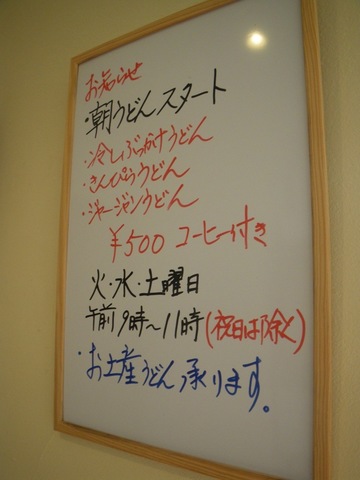 お知らせ
・朝うどんスタート
・冷しぶっかけうどん
・きんぴらうどん
・ジャージャンうどん
￥500 コーヒー付き
火・水・土曜日
午前9時〜11時(祝日は除く)
・お土産うどん承ります。